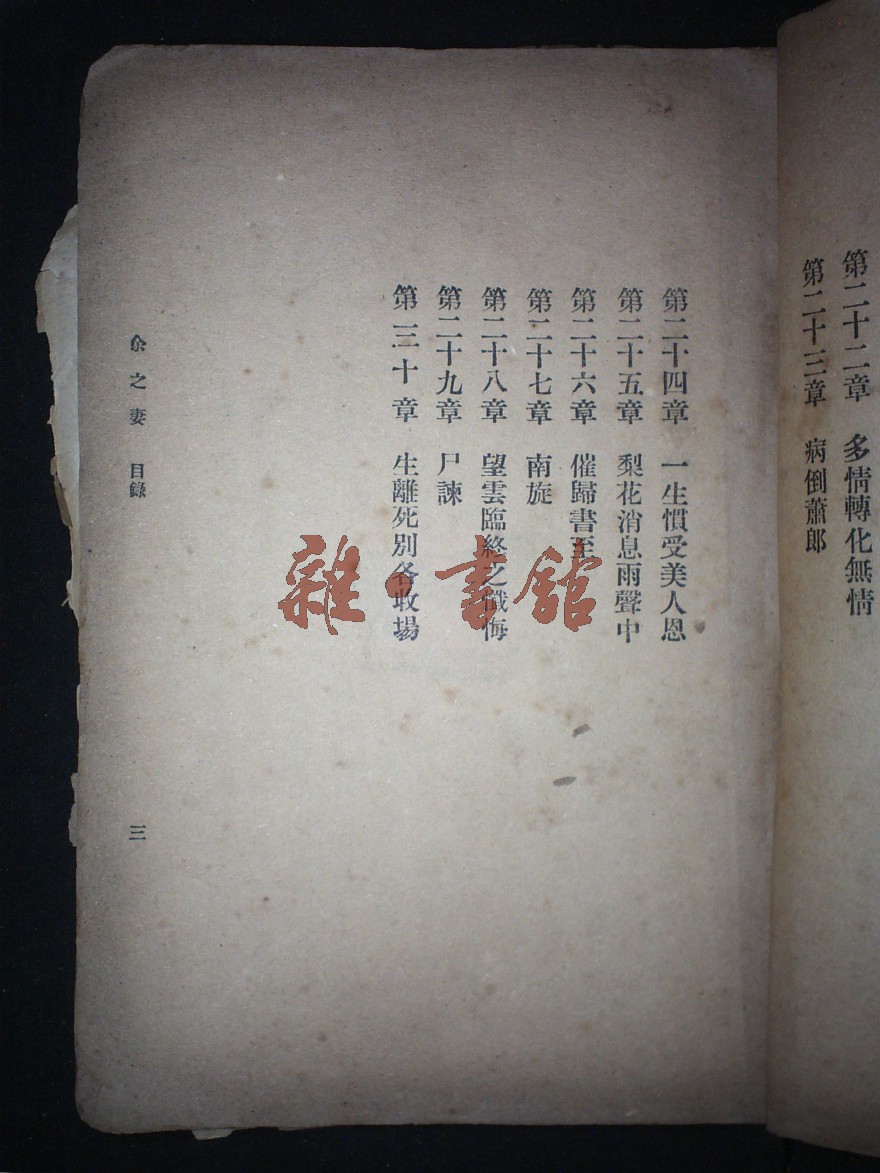 第二十二章　多情轉化無情
第二十三章　病倒蕭郎
第二十四章　一生慣受美人恩
第二十五章　梨花消息雨聲中
第二十六章　催歸書至
第二十七章　南旋
第二十八章　望雲臨終之懺悔
第二十九章　尸諫
第三十章　生離死別各收場
余之妻　目錄
三
雜·書館